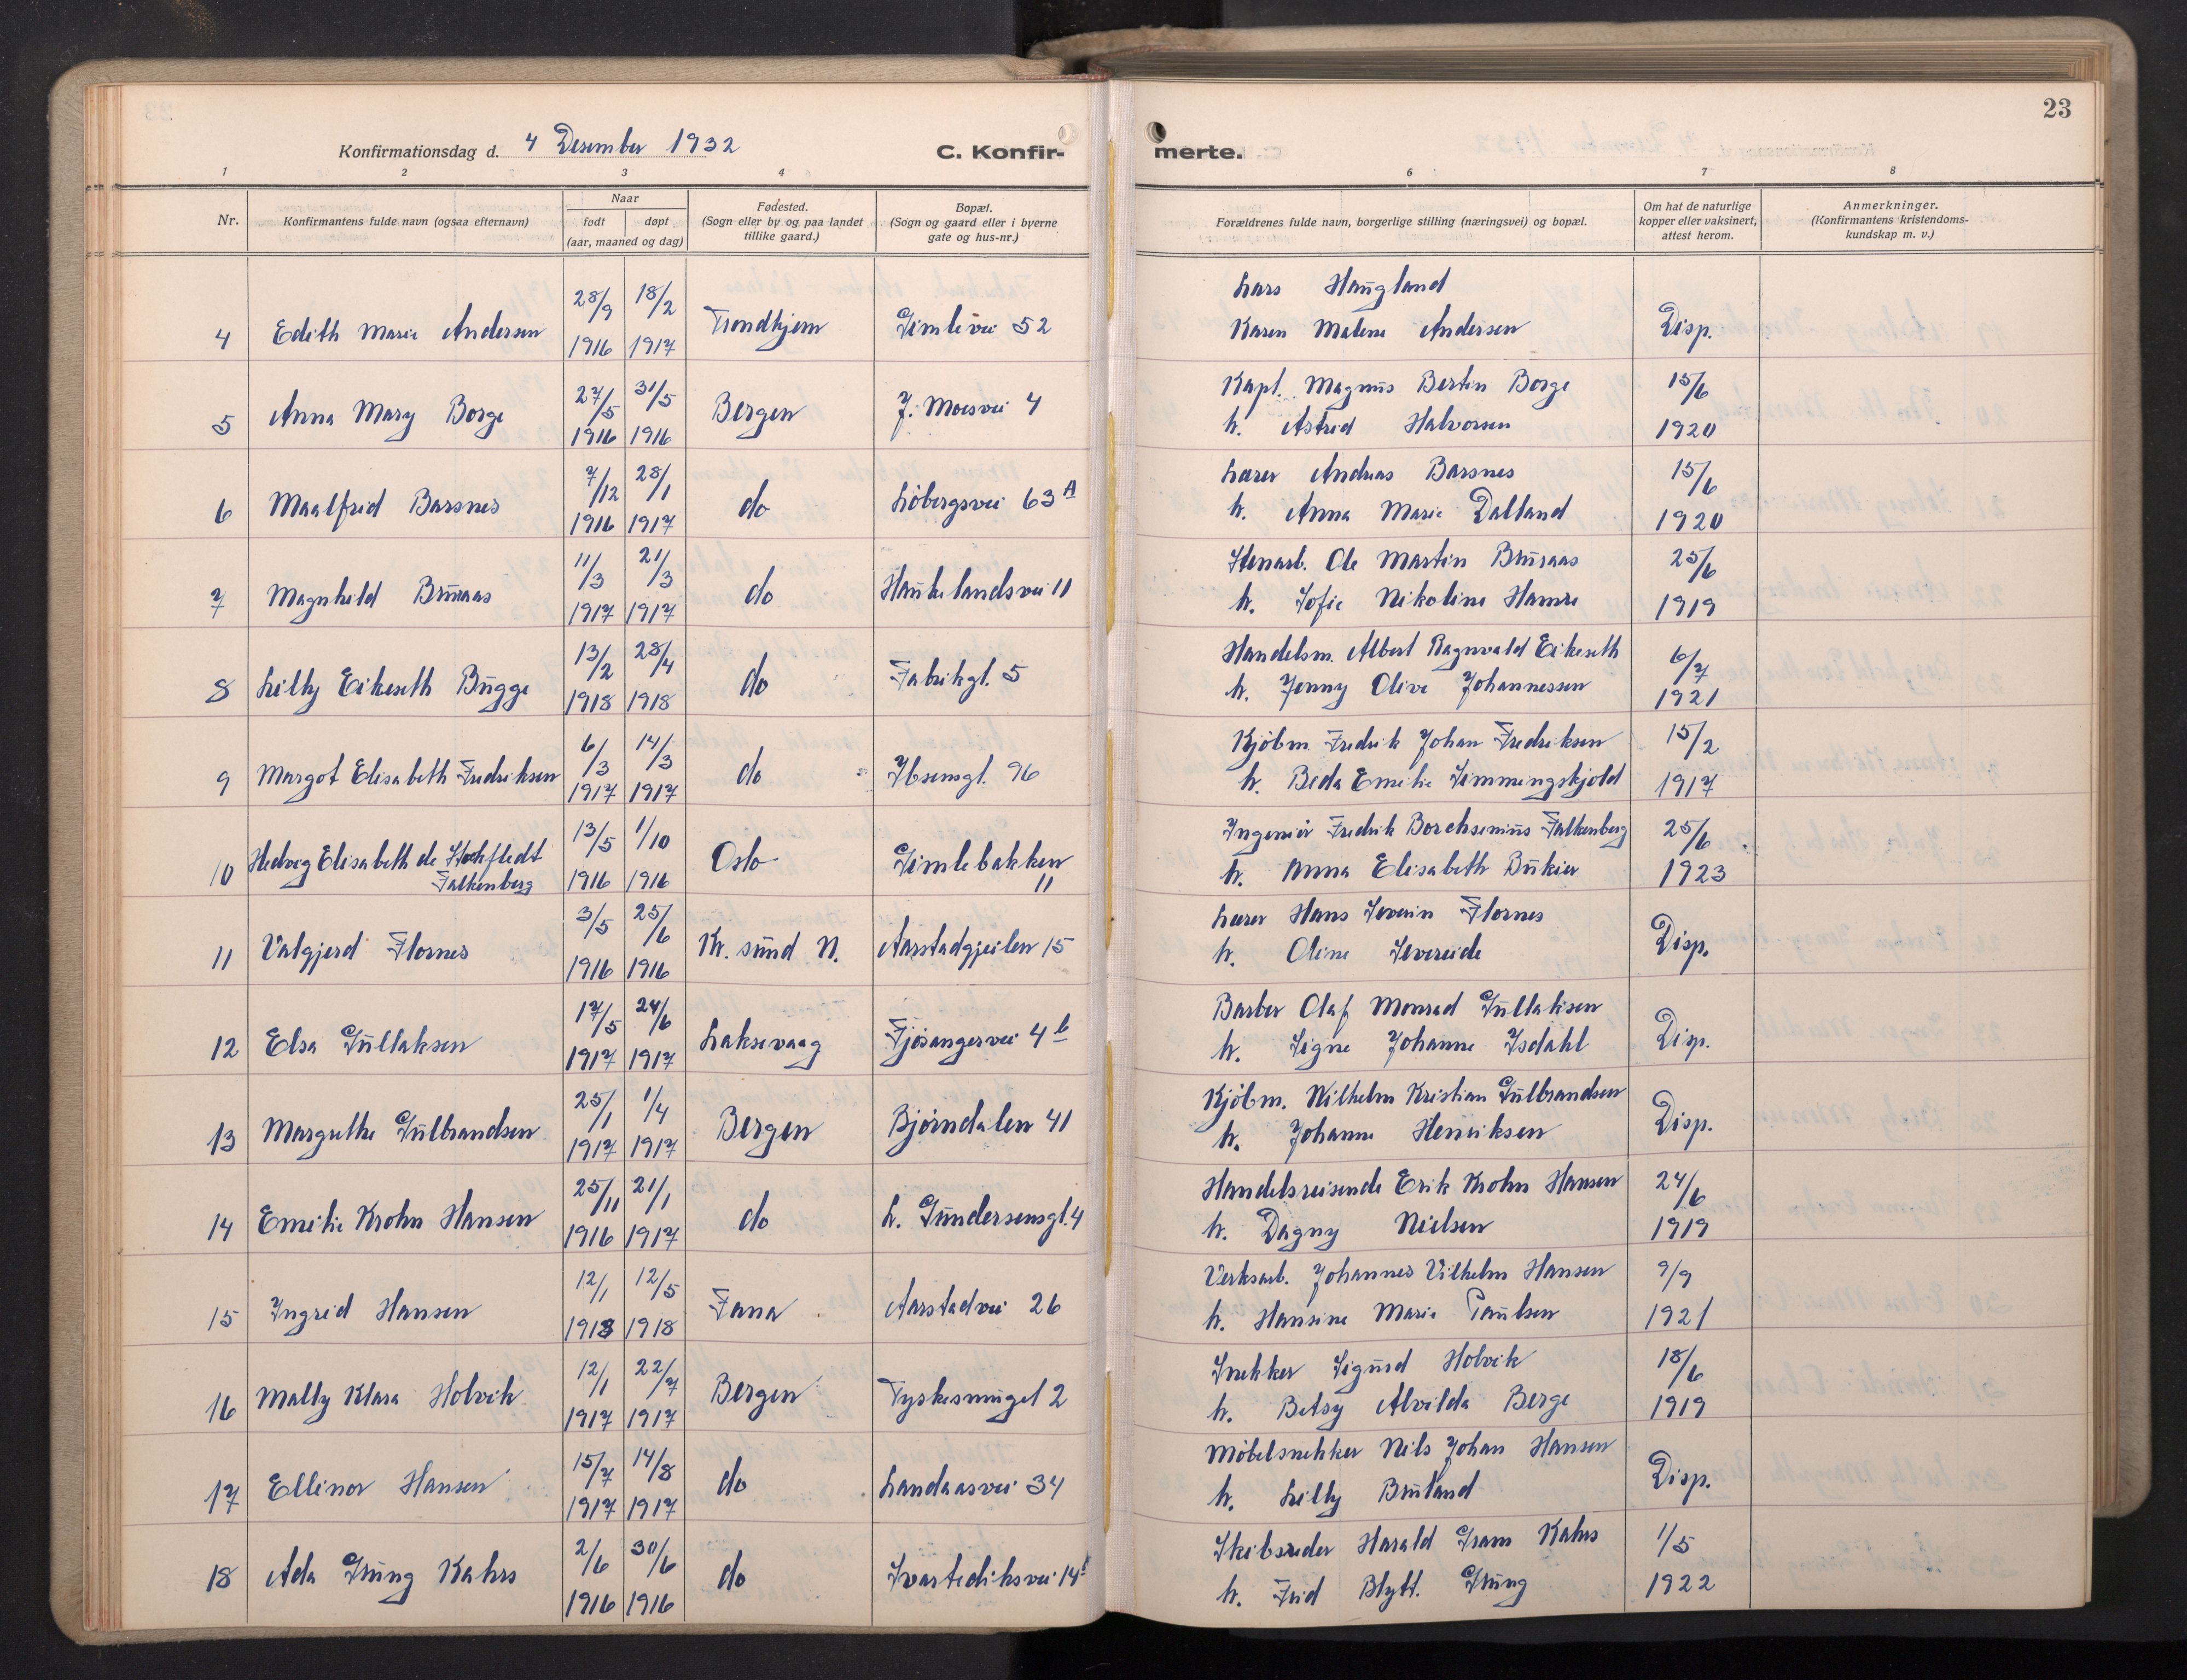 23
Konfirmationsdag d. 4 Desember 1932
C. Konfir- merte.
1 2 3 4 6 7 8
Nr.
Konfirmantens fulde navn (ogsaa efternavn)
Naar
født døpt
(aar, maaned og dag)
Fødested.
(Sogn eller by og paa landet
tillike gaard.)
Bopæl.
(Sogn og gaard eller i byerne
gate og hus-nr.)
Forældrenes fulde navn, borgerlige stilling (næringsvei) og bopæl.
Om hat de naturlige
kopper eller vaksinert,
attest herom.
Anmerkninger.
(Konfirmantens kristendoms-
kundskap m. v.)
28/9 18/2 Lars Haugland
4 Edith Marie Andersen 1916 1917 Trondhjem Gimlevei 52 Karen Malene Andersen Disp.
27/5 31/5 Kapt. Magnus Bertin Borge 15/6
5 Anna Mary Borge 1916 1916 Bergen J. Moesvei 4 h. Astrid Halvorsen 1920
7/12 28/1 Lærer Andreas Barsnes 15/6
6 Maalfrid Barsnes 1916 1917 do Löbergsvei 63 A h. Anna Marie Dalland 1920
11/3 21/3 Stenarb. Ole Martin Bruraas 25/6
7 Magnhild Bruraas 1917 1917 do Haukelandsvei 11 h. Sofie Nikoline Hamre 1919
13/2 28/4 Handelsm. Albert Ragnvald Eikeseth 6/7
8 Lilly Eikeseth Bugge 1918 1918 do Fabrikgt. 5 h. Jenny Olive Johannessen 1921
6/3 14/3 Kjöbm. Fredrik Johan Fredriksen 15/2
9 Margot Elisabeth Fredriksen 1917 1917 do Ibsensgt. 96 h. Beda Emelie Simmingskjold 1917
13/5 1/10 Ingeniör Fredrik Borchsenius Falkenberg 25/6
10 Hedvig Elisabeth de Stockfledt
Falkenberg 1916 1916 Oslo Gimlebakken
11 h. Anna Elisabeth 1923
3/5 25/6 Lærer Hans Severin Flornes
11 Valgjerd Flornes 1916 1916 Kr. sund N. Aarstadgjeilen 15 h. Oline Severeide Disp.
17/5 24/6 Barber Olaf Monrad Gullaksen
12 Elsa Gullaksen 1917 1917 Laksevaag Fjösangervei 4 b h. Signe Johanne Isdahl Disp.
25/1 1/4 Kjöbm. Wilhelm Kristian Gulbrandsen
13 Margrethe Gulbrandsen 1917 1917 Bergen Bjørndalen 41 h. Johanne Henriksen Disp.
25/11 21/1 Handelsreisende Erik Krohn Hansen 24/6
14 Emelie Krohn Hansen 1916 1917 do L. Gundersensgt. 4 h. Dagny Nielsen 1919
12/1 12/5 Verksarb. Johannes Vilhelm Hansen 9/9
15 Ingrid Hansen 1918 1918 Fana Aarstadvei 26 h. Hansine Marie Paulsen 1921
12/1 22/7 Snekker Sigurd Holvik 18/6
16 Mally Klara Holvik 1917 1917 Bergen Tyskesmuget 2 h. Betsy Alvilda Berge 1919
15/7 14/8 Möbelsnekker Nils Johan Hansen
17 Ellinor Hansen 1917 1917 do Landaasvei 34 h. Lilly Bruland Disp.
2/6 30/6 Skibsreder Harald Gram Kahrs 1/5
18 Ada Grung Kahrs 1916 1916 do Svartediksvei 14 h. Frid Blytt. Grung 1922